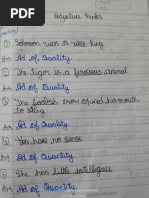 Adjective Kinds
① Solomon was a wise king
Ans Ad of Quality
② The tiger is a ferocious animal
Ans Ad of Quality
③ The foolish crow opened his mouth
to sing
Ans Ad of Quality
④ You have no sense
Ans Ad of Quantity
⑤ She has little intelligence
Ans Ad of Quantity